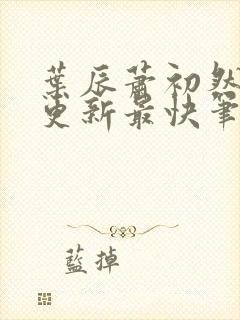 葉辰蕭初然
更新最快筆
藍掉